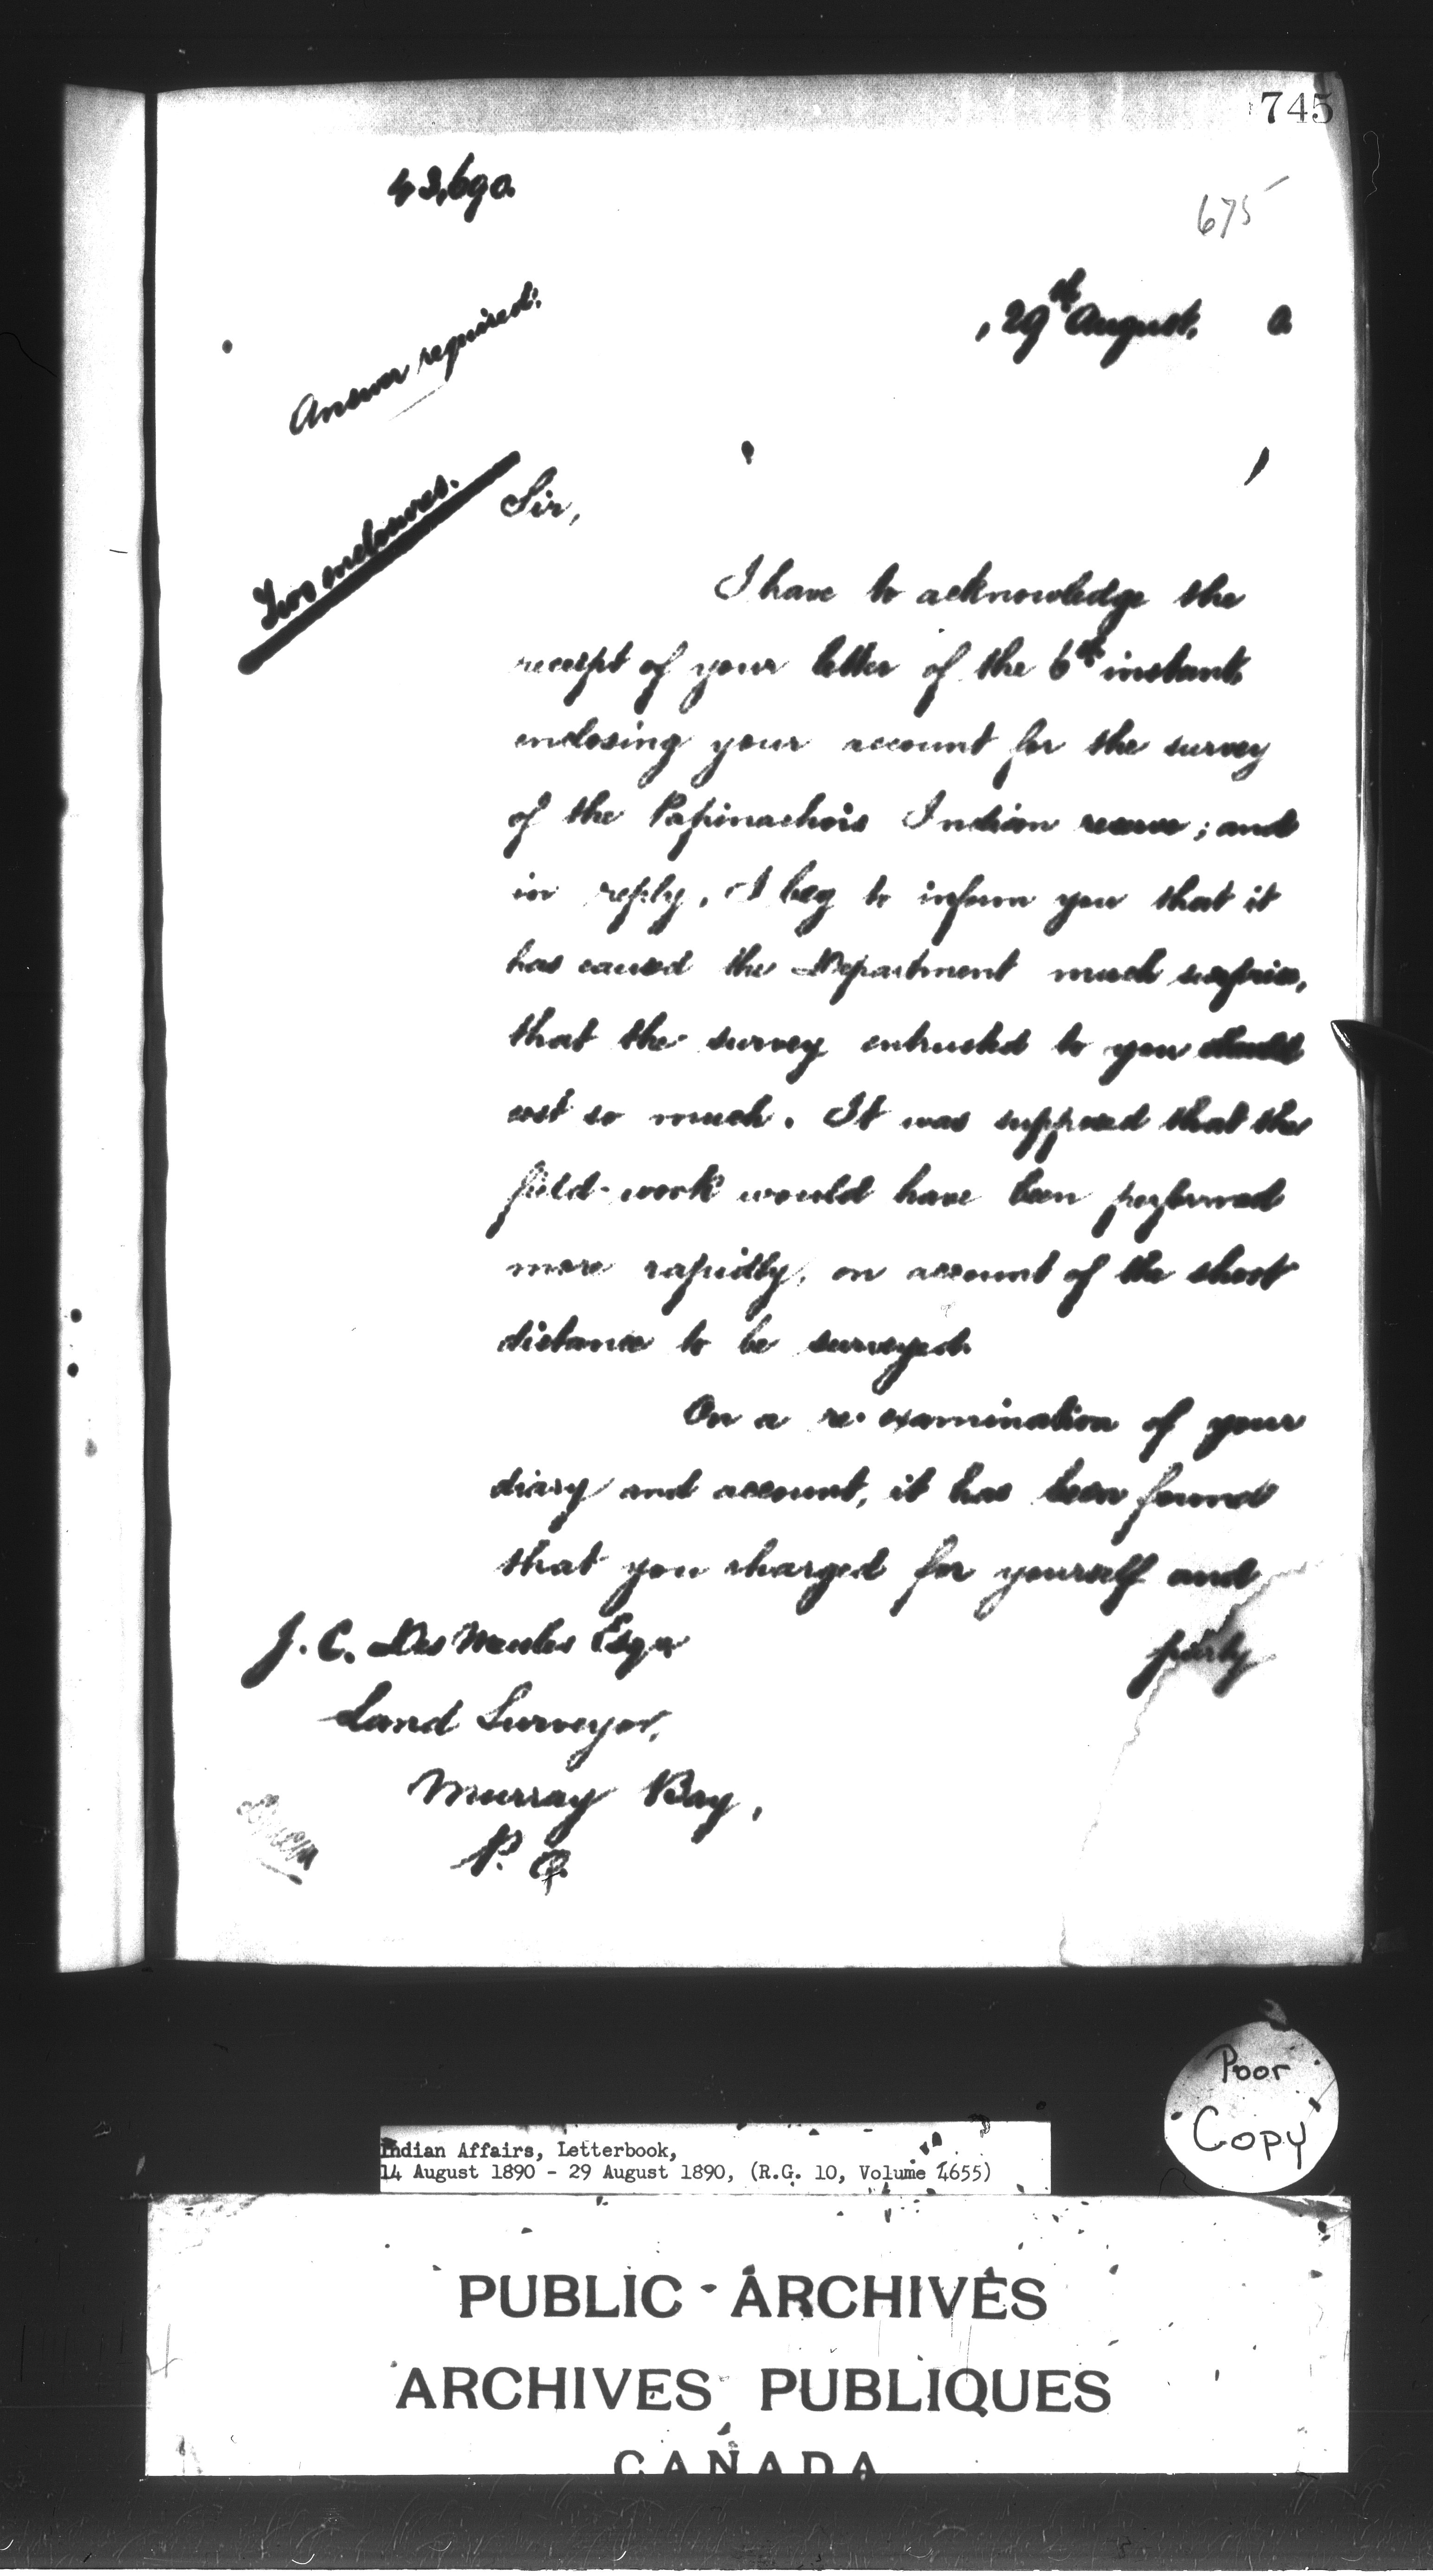 745
43,690.
675
, 29th August, 0.
Answer required.
Two enclosures.
Sir,
I have to acknowledge the
receipt of your letter of the 6th instant,
enclosing your account for the survey
of the Papinachois Indian reserve; and
in reply, I beg to inform you that it
has caused the Department much surprise,
that the survey entrusted to you should
cost so much. It was supposed that the
field-work would have been performed
more rapidly, on account of the short
distance to be surveyed.
On a re-examination of your
diary and account, it has been found
that you charged for yourself and
party
J. C. Des Meules Esqr
Land Surveyor,
Murray Bay,
P. Q.
Poor
Copy
Indian Affairs, Letterbook,
14 August 1890 - 29 August 1890, (R.G. 10, Volume 4655)
PUBLIC ARCHIVES
ARCHIVES PUBLIQUES
CANADA